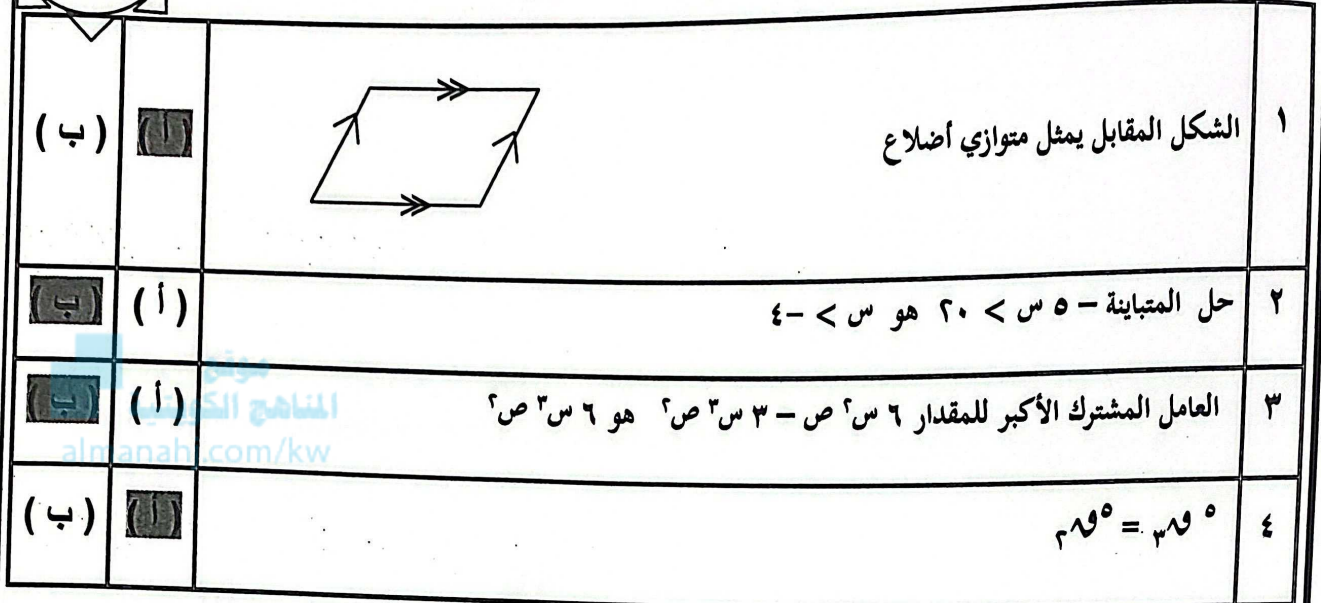 ١ الشكل المقابل يمثل متوازي أضلاع (أ) (ب)
٢ حل المتباينة – ٥ س > ٢٠ هو س > –٤ (أ) (ب)
٣ العامل المشترك الأكبر للمقدار ٦ س٢ ص – ٣ س٣ ص٢ هو ٦ س٣ ص٢ (أ) (ب)
موقع
المناهج الكويتية
almanahj.com/kw
٤ ٥ق٣ = ٥ق٢ (أ) (ب)